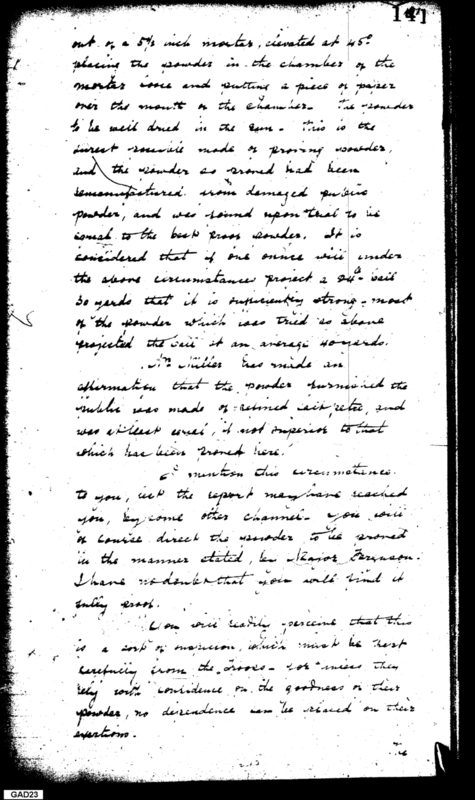 141
out of a 5½ inch morter, elevated at 45°
placing the powder in the chamber of the
morter loose and putting a piece of paper
over the mouth of the chamber. The powder
to be well dried in the sun. This is the
surest possible mode of proving powder,
and the powder as proved had been
remanufactured from damaged public
powder, and was found upon trial to be
equal to the best proof powder. It is
considered that if one ounce will under
the above circumstances project a 24lb ball
50 yards that it is sufficiently strong - most
of the powder which was tried as above
projected the ball at an average yards.
Mr. Miller has made an
affirmation that the powder furnished the
public was made of refined salt petre, and
was at least equal, if not superior to that
which has been proved here.
I mention this circumstance
to you, lest the report may have reached
you, by some other channel. You will
of course direct the powder to be proved
in the manner stated, by Major Ferguson.
I have no doubt that you will find it
entirely proof.
You will readily perceive that this
is a sort of suspicion, which must be kept
carefully from the troops - for unless they
rely with confidence on the goodness of their
powder, no dependence can be placed on their
exertions.
The
GAD23